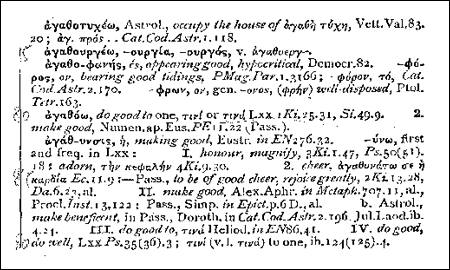 ἀγαθοτυχέω, Astrol., occupy the house of ἀγαθὴ τύχη, Vett.Val.83.
20; ἀγ. πρός .. Cat.Cod.Astr.1.118.
ἀγαθουργέω, -ουργία, -ουργός, v. ἀγαθοεργ-.
ἀγαθο-φανής, ές, appearing good, hypocritical, Democr.82. -φό-
ρος, ον, bearing good tidings, PMag.Par.1.3166; -φόρον, τό, Cat.
Cod.Astr.2.170. -φρων, ον, gen. -ονος, (φρήν) well-disposed, Ptol.
Tetr.163.
ἀγαθόω, do good to one, τινί or τινά Lxx 1Ki.25.31, Si.49.9. 2.
make good, Numen.ap.Eus.PE11.22 (Pass.).
ἀγάθ-υνσις, ἡ, making good, Eustr. in EN276.32. -ύνω, first
and freq. in Lxx: I. honour, magnify, 3Ki.1.47, Ps.50(51).
18: adorn, τὴν κεφαλήν 4Ki.9.30. 2. cheer, ἀγαθυνάτω σε ἡ
καρδία Ec.11.9:—Pass., to be of good cheer, rejoice greatly, 2Ki.13.28,
Da.6.23, al. II. make good, Alex.Aphr. in Metaph.707.11, al.,
Procl.Inst.13,122: Pass., Simp. in Epict.p.6 D., al. b. Astrol.,
make beneficent, in Pass., Doroth. in Cat.Cod.Astr.2.196, Jul.Laod.ib.
4.21. III. do good to, τινά Heliod. in EN86.41. IV. do good,
do well, Lxx Ps.35(36).3; τινί (v.l. τινά) to one, ib.124(125).4.